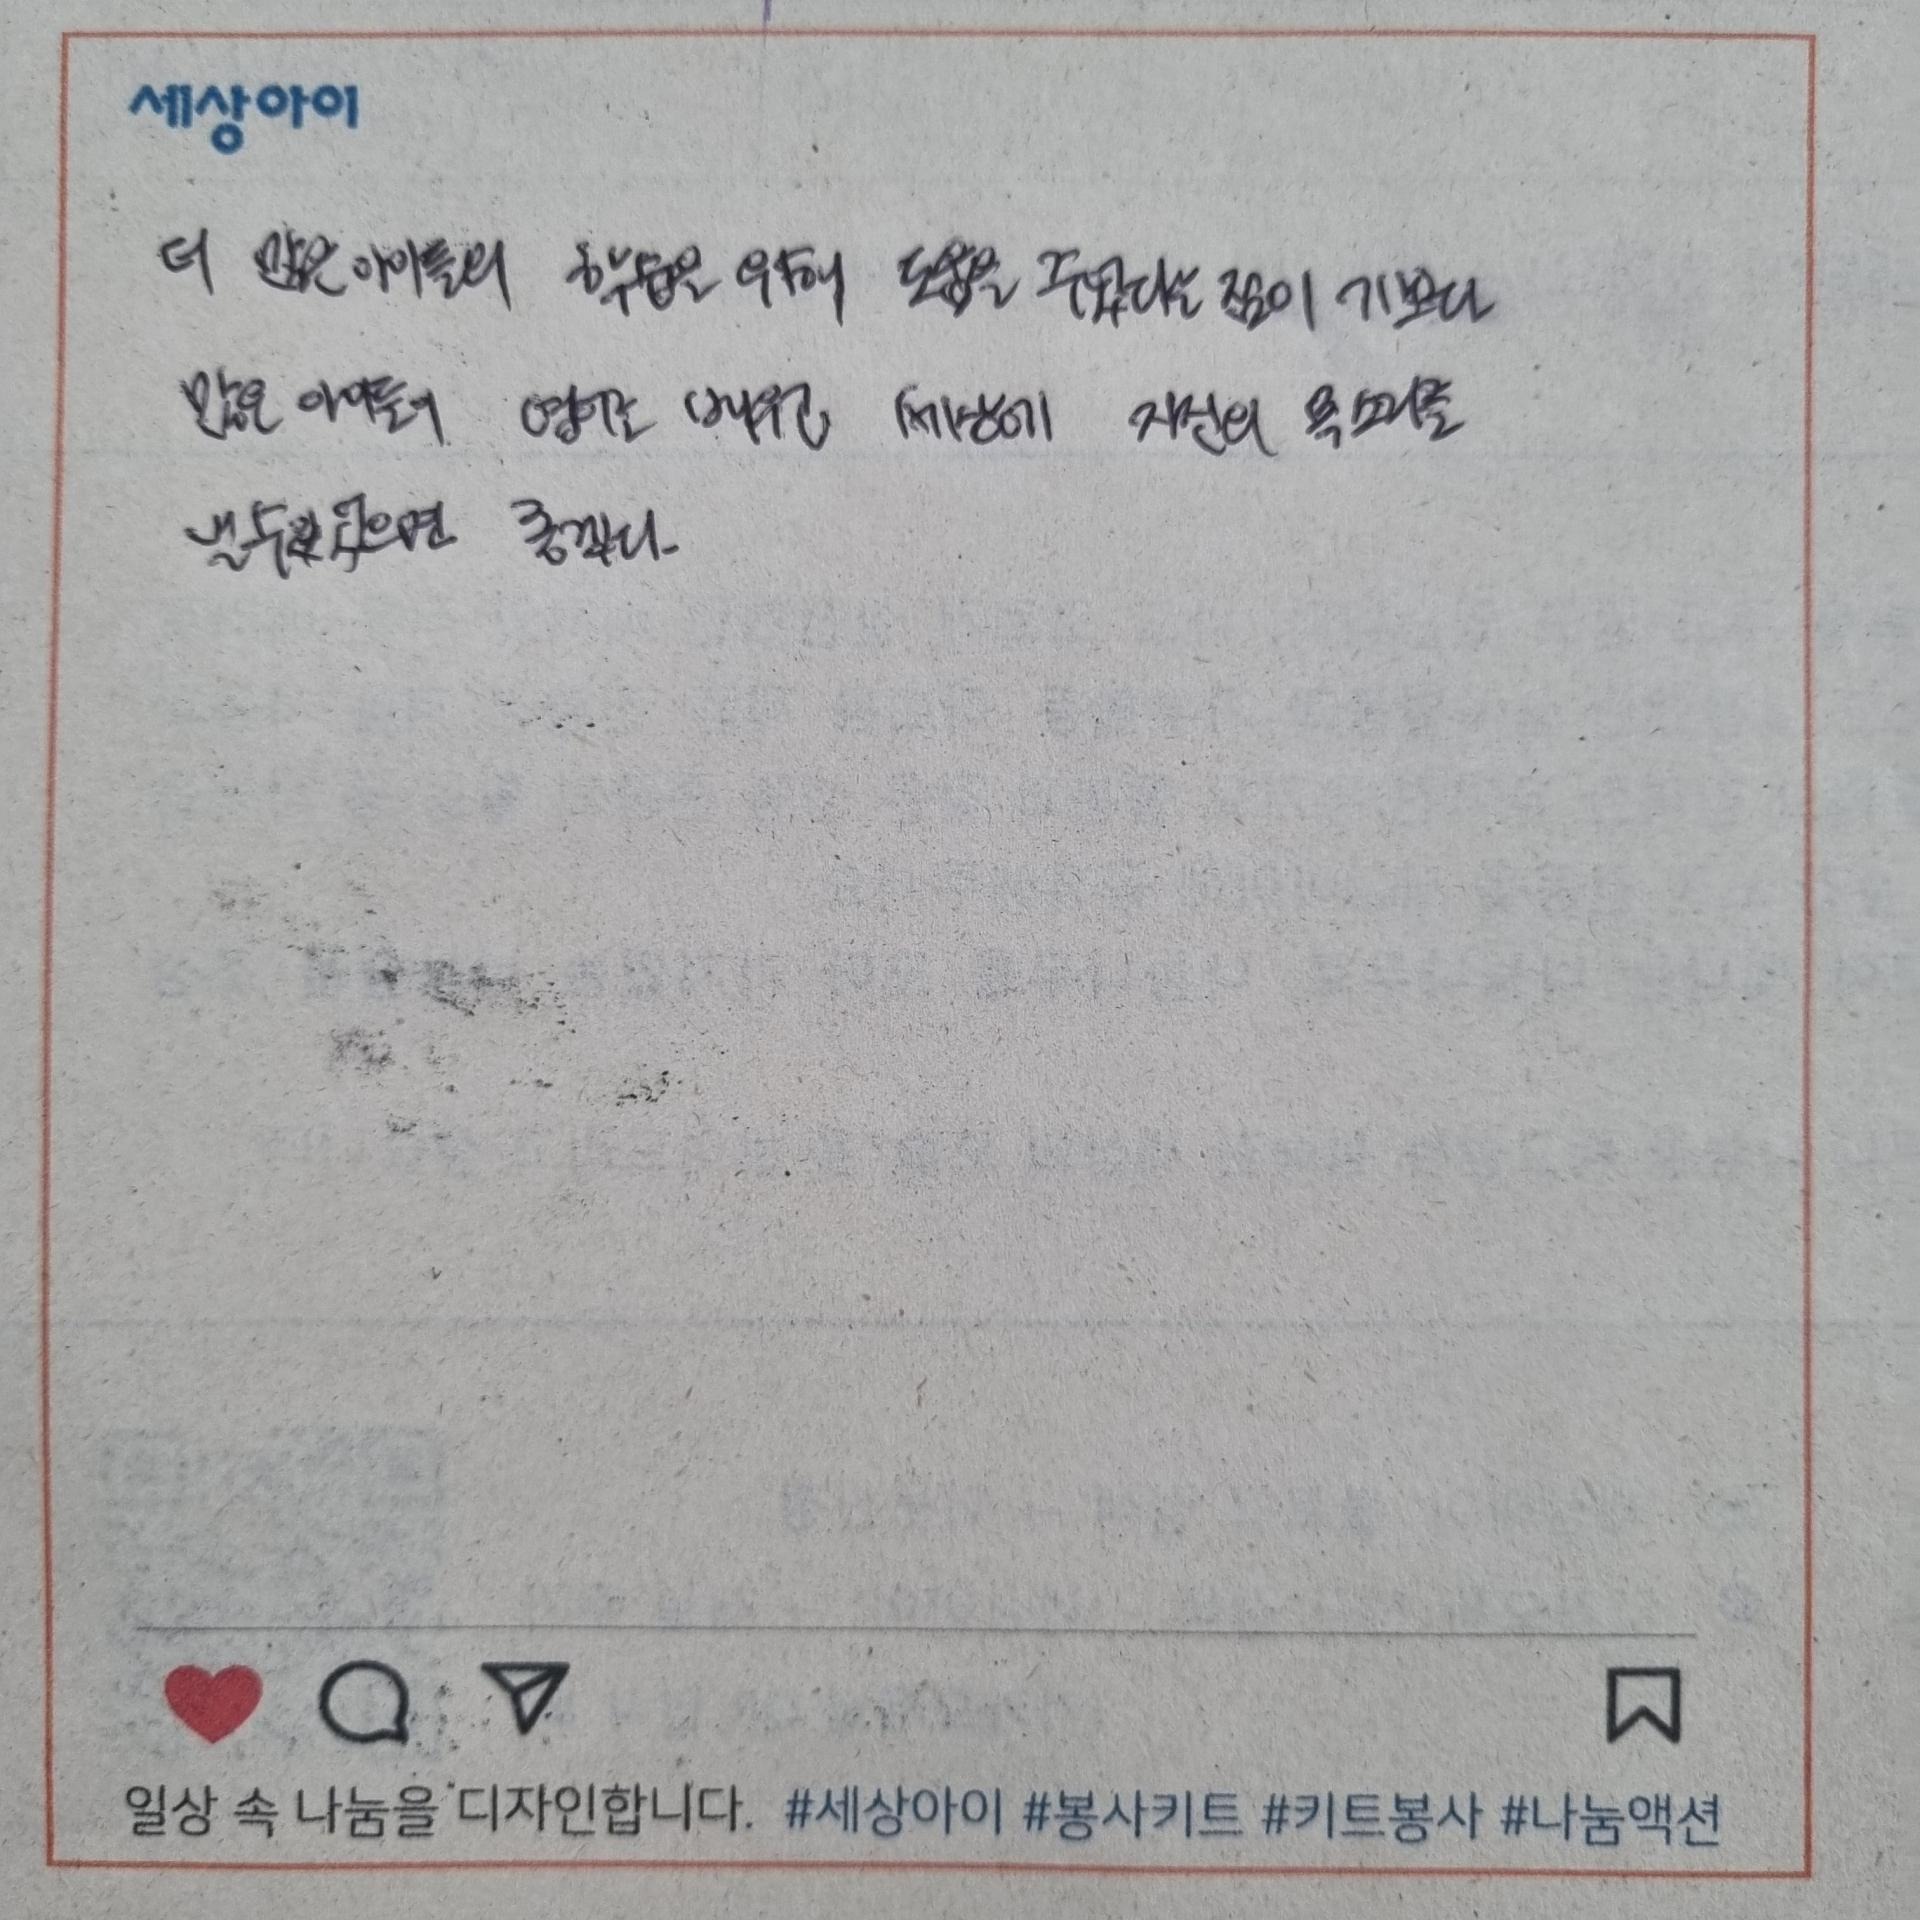 세상아이
더 많은 아이들의 학습을 위해 도움을 주었다는 점이 기쁘다
많은 아이들이 영어로 배우고 세상에 자신의 목소리를
낼 수 있으면 좋겠다.
일상 속 나눔을 디자인합니다. #세상아이 #봉사키트 #키트봉사 #나눔액션